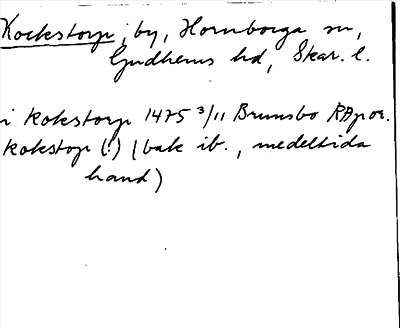 Kockstorp, by, Hornborga sn,
Gudhems hd, Skar. l.
i kokstorp 1475 3/11 Brunsbo RAp or.
kokstop (!) (bak ib., medeltida
hand)